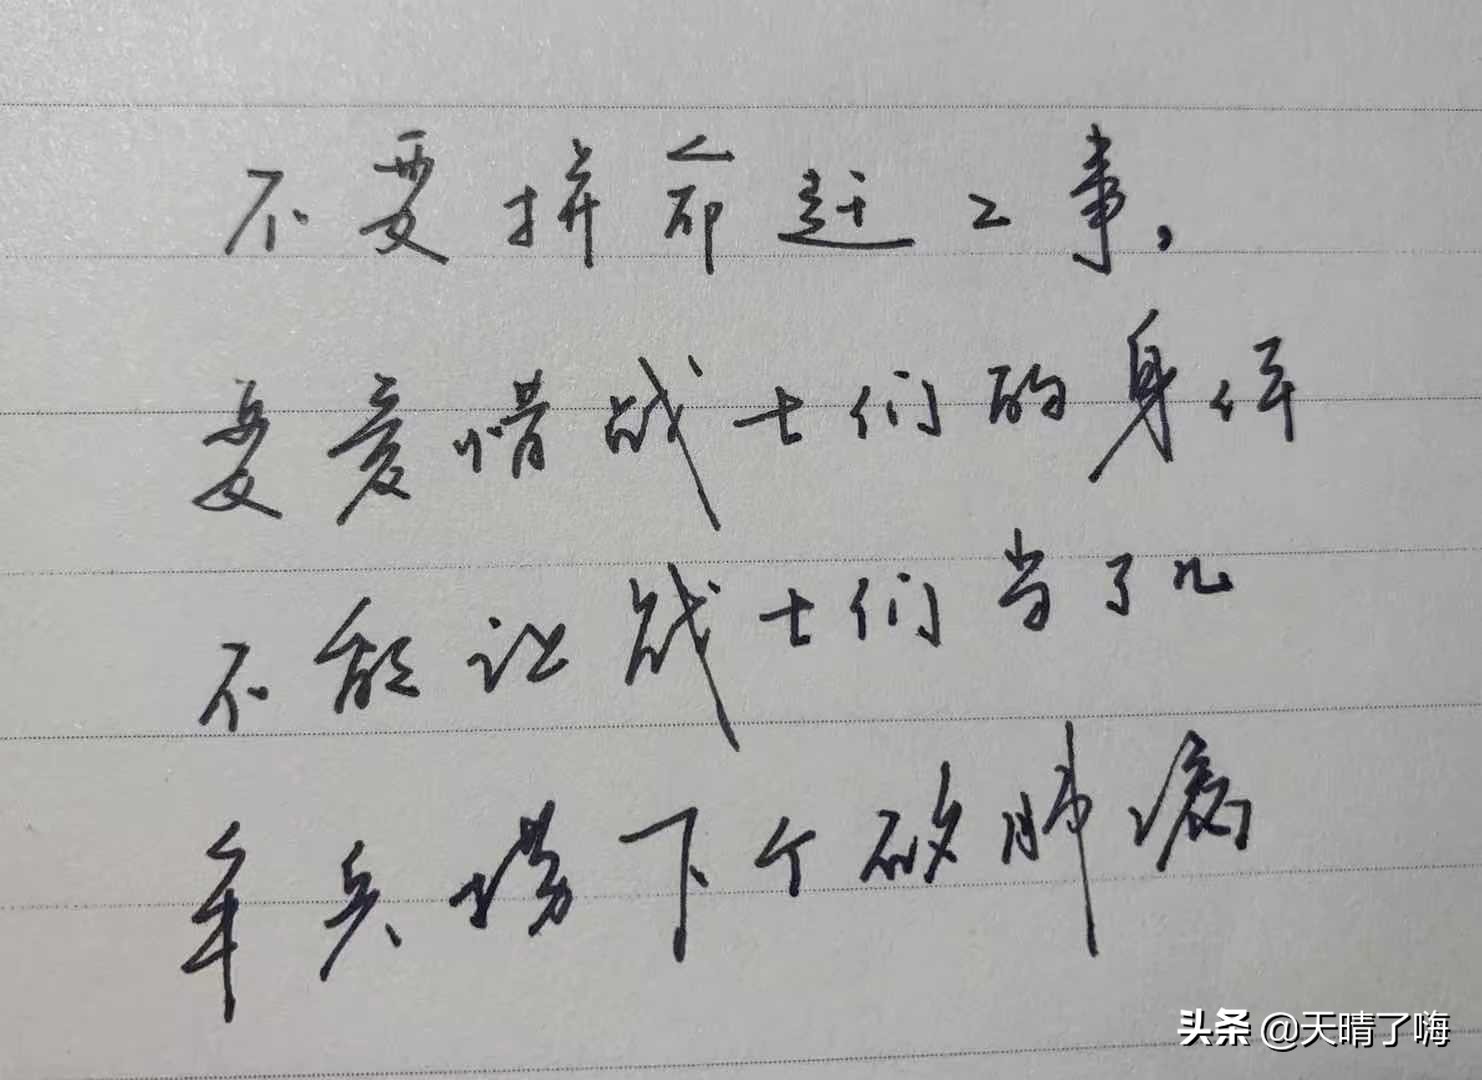 不要拼命赶工事，
要爱惜战士们的身体
不能让战士们当了几
年兵捞下个破肺痨
头条 @天晴了嗨